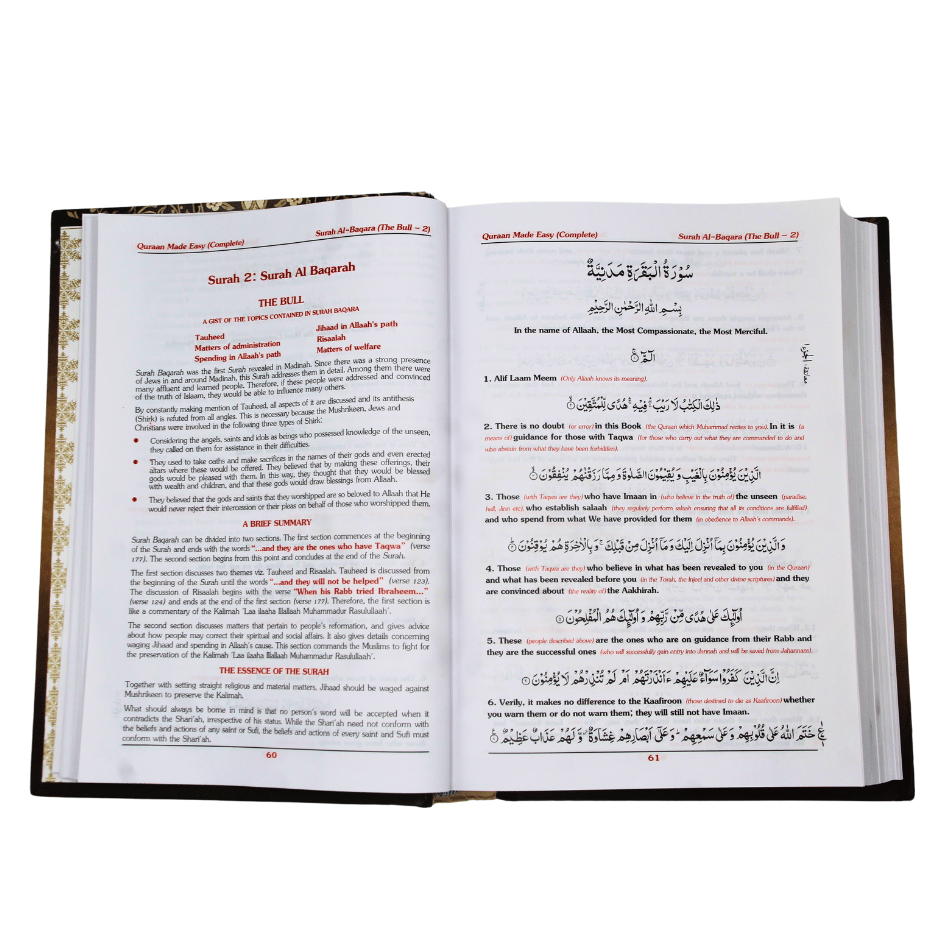 Quraan Made Easy (Complete) Surah Al-Baqara (The Bull – 2)
Surah 2: Surah Al Baqarah
THE BULL
A GIST OF THE TOPICS CONTAINED IN SURAH BAQARA
Tauheed Jihaad in Allaah's path
Matters of administration Risaalah
Spending in Allaah's path Matters of welfare
Surah Baqarah was the first Surah revealed in Madinah. Since there was a strong presence
of Jews in and around Madinah, this Surah addresses them in detail. Among them there were
many affluent and learned people. Therefore, if these people were addressed and convinced
of the truth of Islaam, they would be able to influence many others.
By constantly making mention of Tauheed, all aspects of it are discussed and its antithesis
(Shirk) is refuted from all angles. This is necessary because the Mushrikeen, Jews and
Christians were involved in the following three types of Shirk:
• Considering the angels, saints and idols as beings who possessed knowledge of the unseen,
they called on them for assistance in their difficulties.
• They used to take oaths and make sacrifices in the names of their gods and even erected
altars where these would be offered. They believed that by making these offerings, their
gods would be pleased with them. In this way, they thought that they would be blessed
with wealth and children, and that these gods would draw blessings from Allaah.
• They believed that the gods and saints that they worshipped are so beloved to Allaah that He
would never reject their intercession or their pleas on behalf of those who worshipped them.
A BRIEF SUMMARY
Surah Baqarah can be divided into two sections. The first section commences at the beginning
of the Surah and ends with the words "...and they are the ones who have Taqwa" (verse
177). The second section begins from this point and concludes at the end of the Surah.
The first section discusses two themes viz. Tauheed and Risaalah. Tauheed is discussed from
the beginning of the Surah until the words "...and they will not be helped" (verse 123).
The discussion of Risaalah begins with the verse "When his Rabb tried Ibraheem..."
(verse 124) and ends at the end of the first section (verse 177). Therefore, the first section is
like a commentary of the Kalimah 'Laa ilaaha Illallaah Muhammadur Rasulullaah'.
The second section discusses matters that pertain to people's reformation, and gives advice
about how people may correct their spiritual and social affairs. It also gives details concerning
waging Jihaad and spending in Allaah's cause. This section commands the Muslims to fight for
the preservation of the Kalimah 'Laa ilaaha Illallaah Muhammadur Rasulullaah'.
THE ESSENCE OF THE SURAH
Together with setting straight religious and material matters, Jihaad should be waged against
Mushrikeen to preserve the Kalimah.
What should always be borne in mind is that no person's word will be accepted when it
contradicts the Shari'ah, irrespective of his status. While the Shari'ah need not conform with
the beliefs and actions of any saint or Sufi, the beliefs and actions of every saint and Sufi must
conform with the Shari'ah.
60
Quraan Made Easy (Complete) Surah Al-Baqara (The Bull – 2)
سُوْرَةُ الْبَقَرَةِ مَدَنِيَّةٌ
بِسْمِ اللهِ الرَّحْمٰنِ الرَّحِيْمِ
In the name of Allaah, the Most Compassionate, the Most Merciful.
الٓمّٓ ۚ ۱
1. Alif Laam Meem (Only Allaah knows its meaning).
ذٰلِكَ الْكِتٰبُ لَا رَيْبَ ۛ فِيْهِ ۛ هُدًى لِّلْمُتَّقِيْنَ ۲
2. There is no doubt (or error) in this Book (the Quraan which Muhammad recites to you). In it is (a
means of) guidance for those with Taqwa (for those who carry out what they are commanded to do and
who abstain from what they have been forbidden).
الَّذِيْنَ يُؤْمِنُوْنَ بِالْغَيْبِ وَ يُقِيْمُوْنَ الصَّلٰوةَ وَ مِمَّا رَزَقْنٰهُمْ يُنْفِقُوْنَ ۳
3. Those (with Taqwa are they) who have Imaan in (who believe in the truth of) the unseen (paradise,
hell, Jinn etc), who establish salaah (they regularly perform salaah ensuring that all its conditions are fulfilled)
and who spend from what We have provided for them (in obedience to Allaah's commands).
وَ الَّذِيْنَ يُؤْمِنُوْنَ بِمَاۤ اُنْزِلَ اِلَيْكَ وَ مَاۤ اُنْزِلَ مِنْ قَبْلِكَ ۚ وَ بِالْاٰخِرَةِ هُمْ يُوْقِنُوْنَ ۴
4. Those (with Taqwa are they) who believe in what has been revealed to you (in the Quraan)
and what has been revealed before you (in the Torah, the Injeel and other divine scriptures) and they
are convinced about (the reality of) the Aakhirah.
اُولٰٓئِكَ عَلٰى هُدًى مِّنْ رَّبِّهِمْ وَ اُولٰٓئِكَ هُمُ الْمُفْلِحُوْنَ ۵
5. These (people described above) are the ones who are on guidance from their Rabb and
they are the successful ones (who will successfully gain entry into Jannah and will be saved from Jahannam).
اِنَّ الَّذِيْنَ كَفَرُوْا سَوَآءٌ عَلَيْهِمْ ءَاَنْذَرْتَهُمْ اَمْ لَمْ تُنْذِرْهُمْ لَا يُؤْمِنُوْنَ ۶
6. Verily, it makes no difference to the Kaafiroon (those destined to die as Kaafiroon) whether
you warn them or do not warn them; they will still not have Imaan.
خَتَمَ اللهُ عَلٰى قُلُوْبِهِمْ وَ عَلٰى سَمْعِهِمْ ؕ وَ عَلٰۤى اَبْصَارِهِمْ غِشَاوَةٌ ؗ وَّ لَهُمْ عَذَابٌ عَظِيْمٌ ۷
61